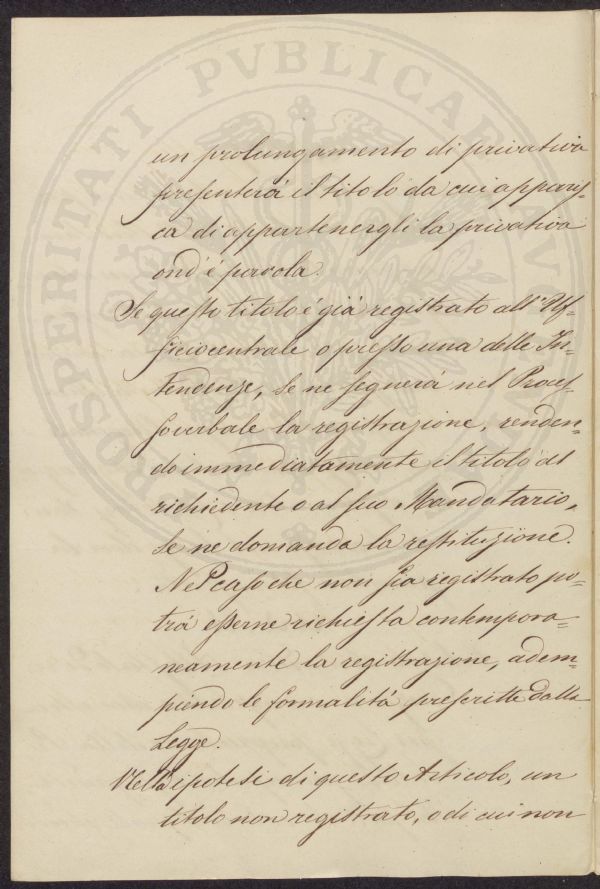 PROSPERITATI PVBLICAE AVGE
un prolungamento di privativa
presenterà il titolo da cui apparis-
ca di appartenergli la privativa
ond'è parola.
Se questo titolo è già registrato all'Uf=
ficio centrale o presso una delle In=
tendenze, se ne seguerà nel Proces=
so verbale la registrazione, renden=
do immediatamente il titolo al
richiedente o al suo Mandatario,
se ne domanda la restituzione.
Nel caso che non sia registrato po=
trà esserne richiesta contempora=
neamente la registrazione, adem=
piendo le formalità prescritte dalla
Legge.
Nell'ipotesi di questo Articolo, un
titolo non registrato, o di cui non